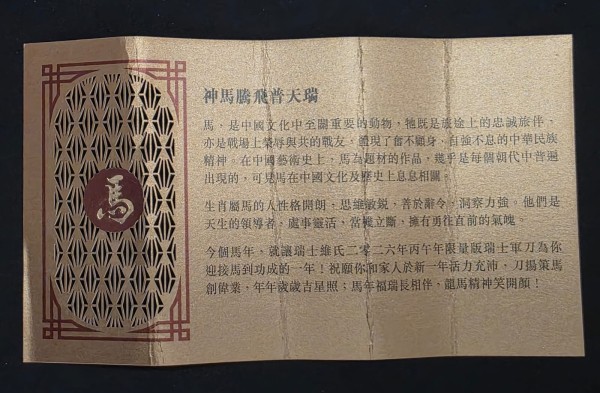 馬
神馬騰飛普天瑞
馬，是中國文化中至關重要的動物，牠既是旅途上的忠誠旅伴、
亦是戰場上榮辱與共的戰友，體現了奮不顧身、自強不息的中華民族
精神。在中國藝術史上，馬為題材的作品，幾乎是每個朝代中普遍
出現的，可見馬在中國文化及歷史上息息相關。
生肖屬馬的人性格開朗，思維敏銳，善於辭令，洞察力強。他們是
天生的領導者，處事靈活，當機立斷，擁有勇往直前的氣魄。
今個馬年，就讓瑞士維氏二零二六年丙午年限量版瑞士軍刀為你
迎接馬到功成的一年！祝願你和家人於新一年活力充沛，刀揚策馬
創偉業，年年歲歲吉星照；馬年福瑞長相伴，龍馬精神笑開顏！